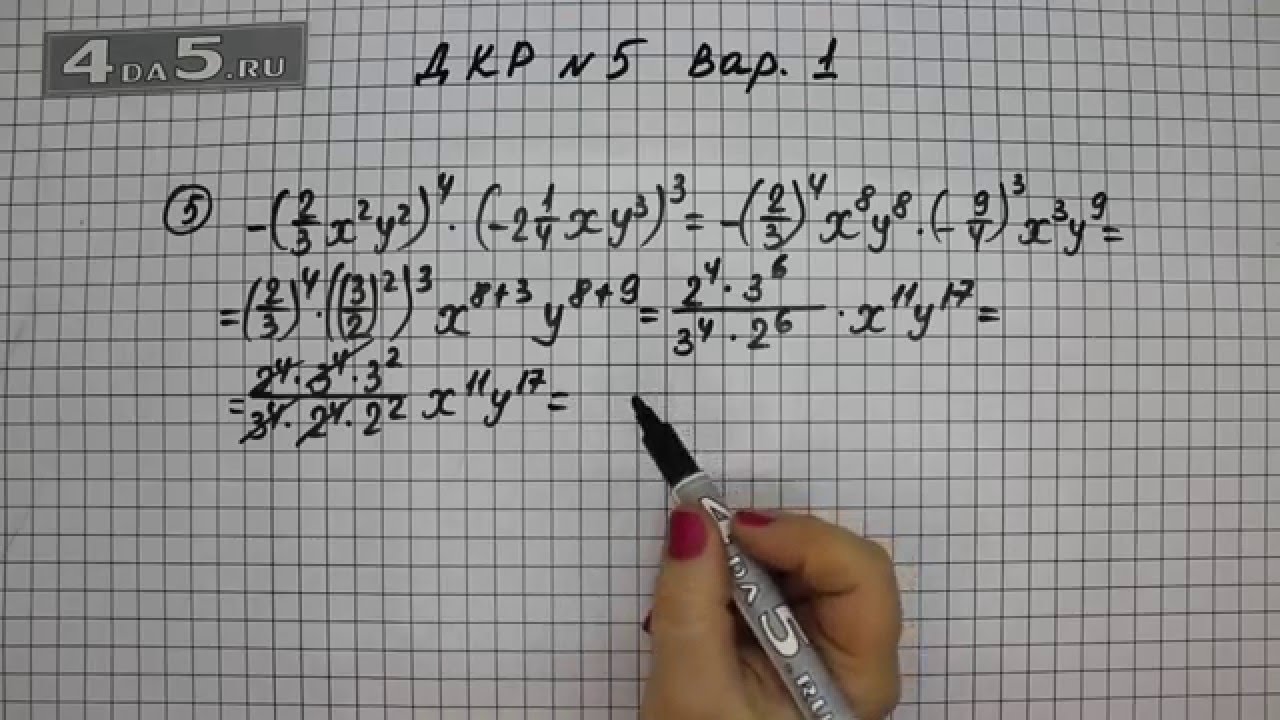 4DA5.RU
ДКР №5 Вар. 1
⑤ -(2/3 x²y²)⁴ · (-2 1/4 xy³)³ = -(2/3)⁴ x⁸y⁸ · (-9/4)³ x³y⁹ =
= (2/3)⁴ · ((3/2)²)³ x⁸⁺³ y⁸⁺⁹ = (2⁴ · 3⁶)/(3⁴ · 2⁶) · x¹¹y¹⁷ =
= (2⁴ · 3⁴ · 3²)/(3⁴ · 2⁴ · 2²) x¹¹y¹⁷ =
4DA5.RU